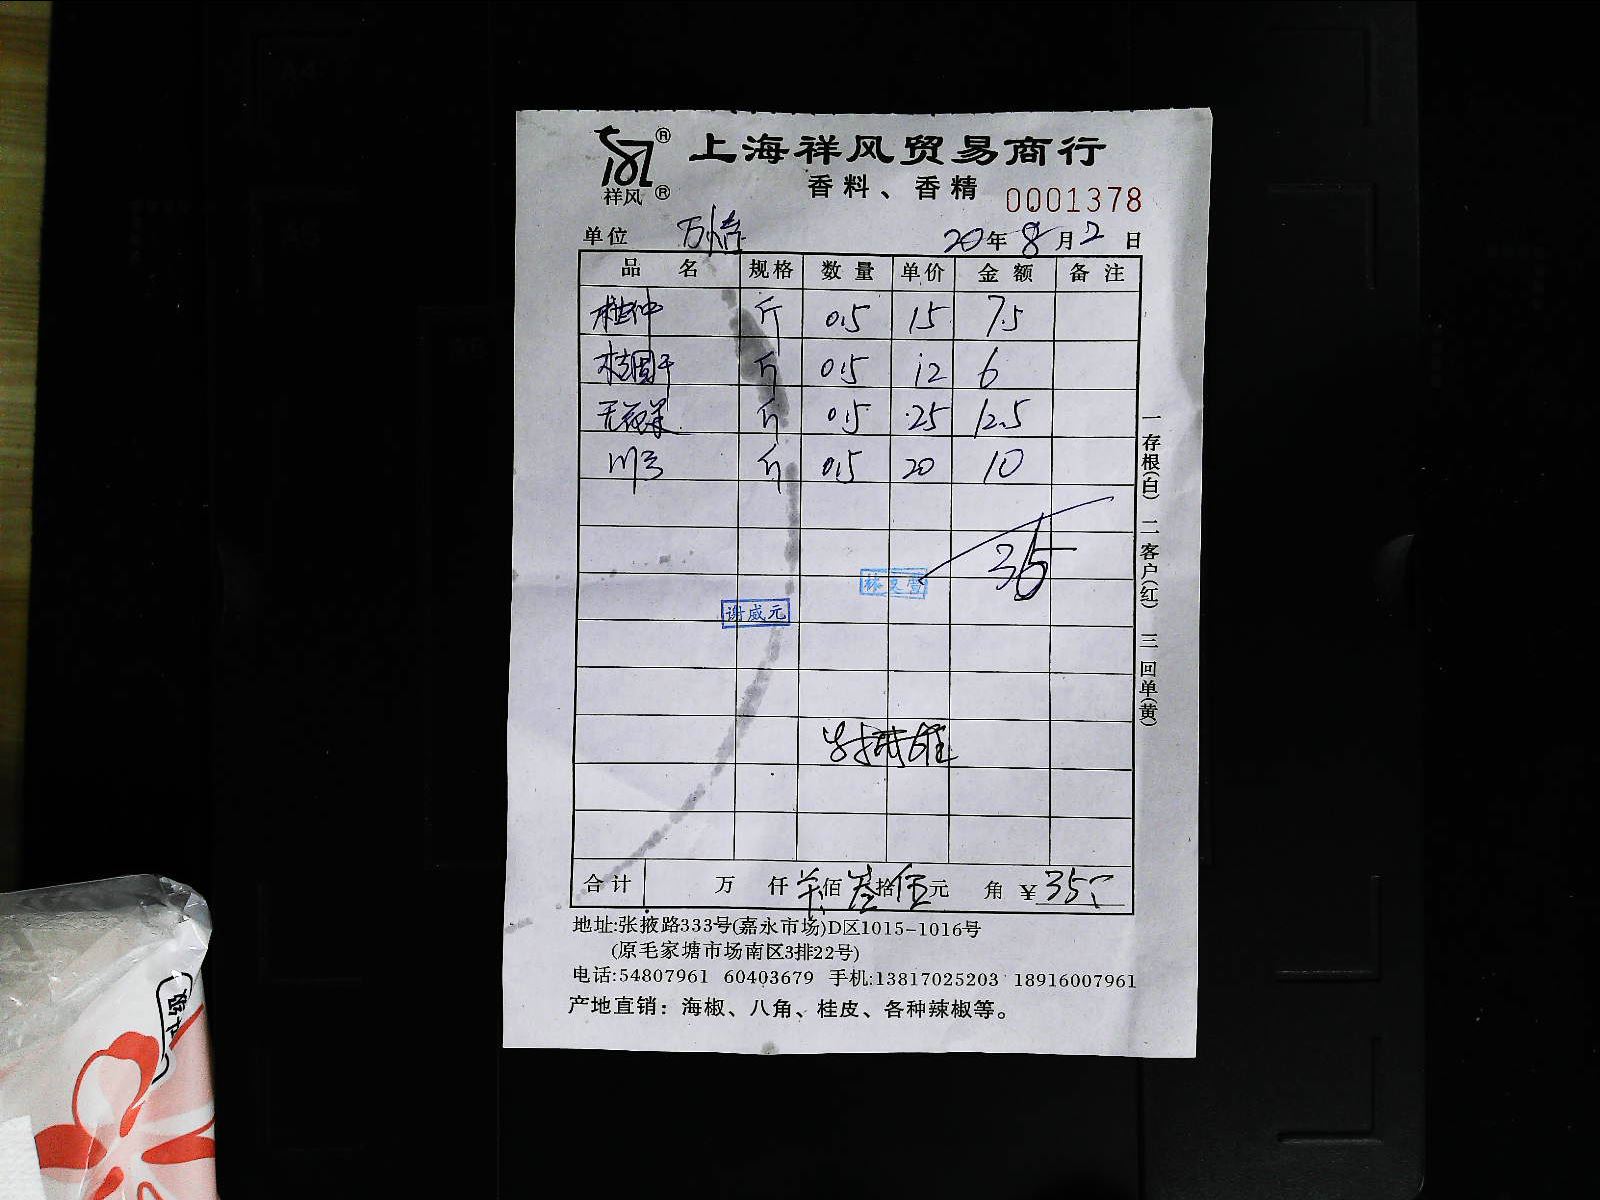 上海祥风贸易商行
祥风
香料、香精 0001378
单位 万 20年8月2日
品名 规格 数量 单价 金额 备注
杜仲 斤 0.5 15 7.5
桂圆干 斤 0.5 12 6
无花果 斤 0.5 25 12.5
川弓 斤 0.5 20 10
35
林文
谢威元
合计 万 仟 佰 叁拾伍元 角 ¥35
一存根(白) 二客户(红) 三回单(黄)
地址:张掖路333号(嘉永市场)D区1015-1016号
(原毛家塘市场南区3排22号)
电话:54807961 60403679 手机:13817025203 18916007961
产地直销：海椒、八角、桂皮、各种辣椒等。